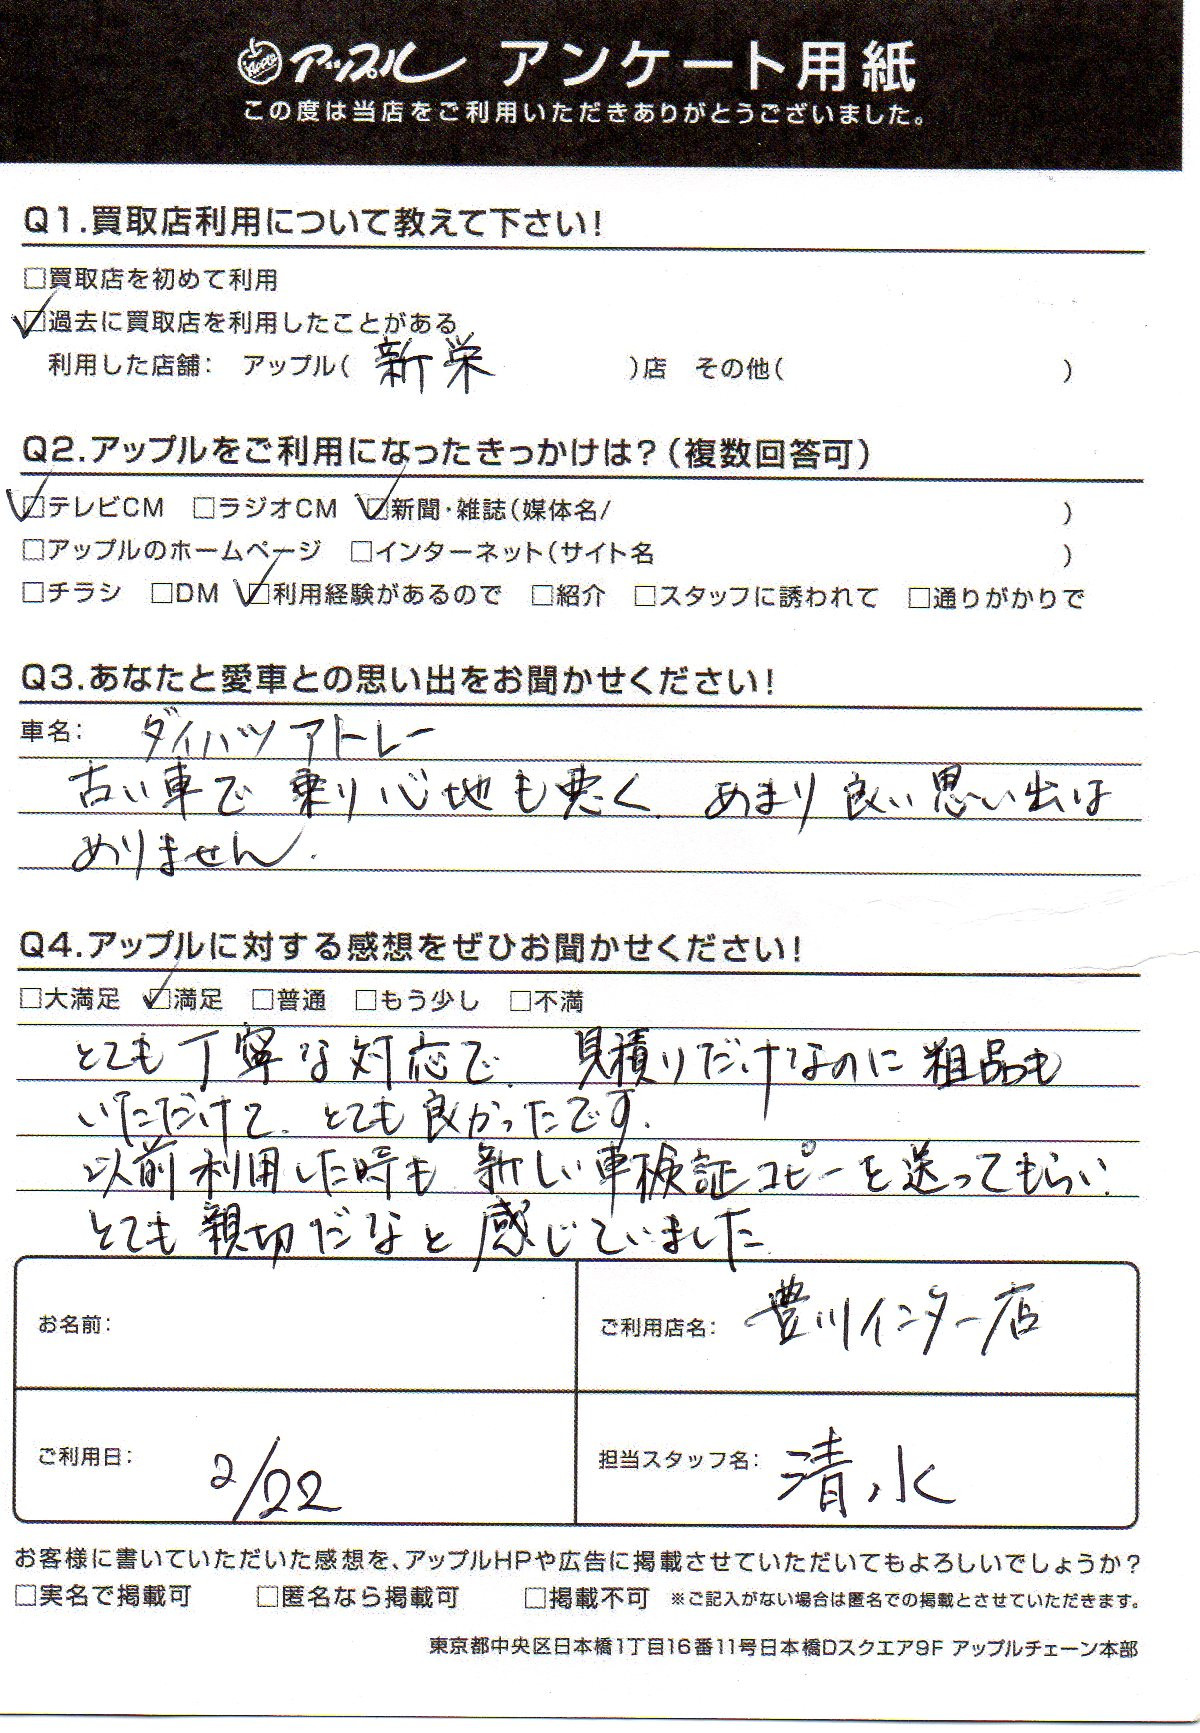 Apple アップル アンケート用紙
この度は当店をご利用いただきありがとうございました。
Q1.買取店利用について教えて下さい!
□買取店を初めて利用
☑過去に買取店を利用したことがある
利用した店舗: アップル( 新栄 )店 その他( )
Q2.アップルをご利用になったきっかけは?(複数回答可)
☑テレビCM □ラジオCM ☑新聞・雑誌(媒体名/ )
□アップルのホームページ □インターネット(サイト名 )
□チラシ □DM ☑利用経験があるので □紹介 □スタッフに誘われて □通りがかりで
Q3.あなたと愛車との思い出をお聞かせください!
車名: ダイハツ アトレー
古い車で 乗り心地も悪く、あまり良い思い出は
ありません.
Q4.アップルに対する感想をぜひお聞かせください!
□大満足 ☑満足 □普通 □もう少し □不満
とても丁寧な対応で、見積りだけなのに粗品も
いただけて、とても良かったです.
以前利用した時も、新しい車検証コピーを送ってもらい、
とても親切だなと感じていました.
お名前: ご利用店名: 豊川インター店
ご利用日: 2/22 担当スタッフ名: 清水
お客様に書いていただいた感想を、アップルHPや広告に掲載させていただいてもよろしいでしょうか?
□実名で掲載可 □匿名なら掲載可 □掲載不可 ※ご記入がない場合は匿名での掲載とさせていただきます。
東京都中央区日本橋1丁目16番11号日本橋Dスクエア9F アップルチェーン本部